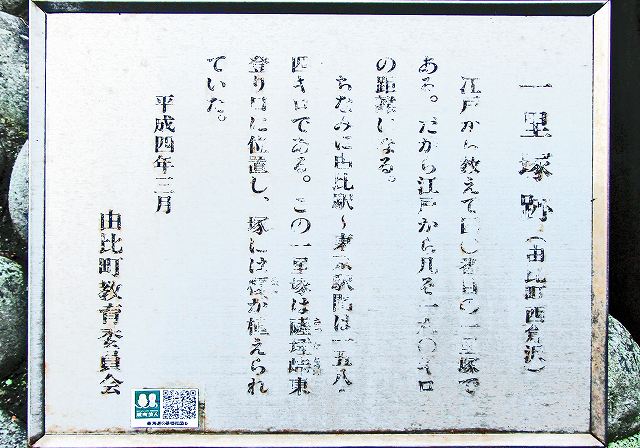 一里塚跡(由比町西倉沢)
江戸から数えて四〇番目の一里塚で
ある。だから江戸から凡そ一六〇キロ
の距離になる。
ちなみに由比駅〜東京駅間は一五八・
四キロである。この一里塚は薩埵峠東
登り口に位置し、塚には榎が植えられ
ていた。
平成四年三月
由比町教育委員会